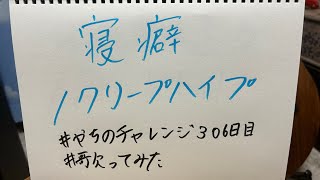 寝癖
/クリープハイプ
#やちのチャレンジ306日目
#歌ってみた